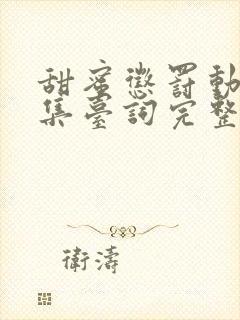 甜蜜懲罰動
集臺詞完整
衛濤